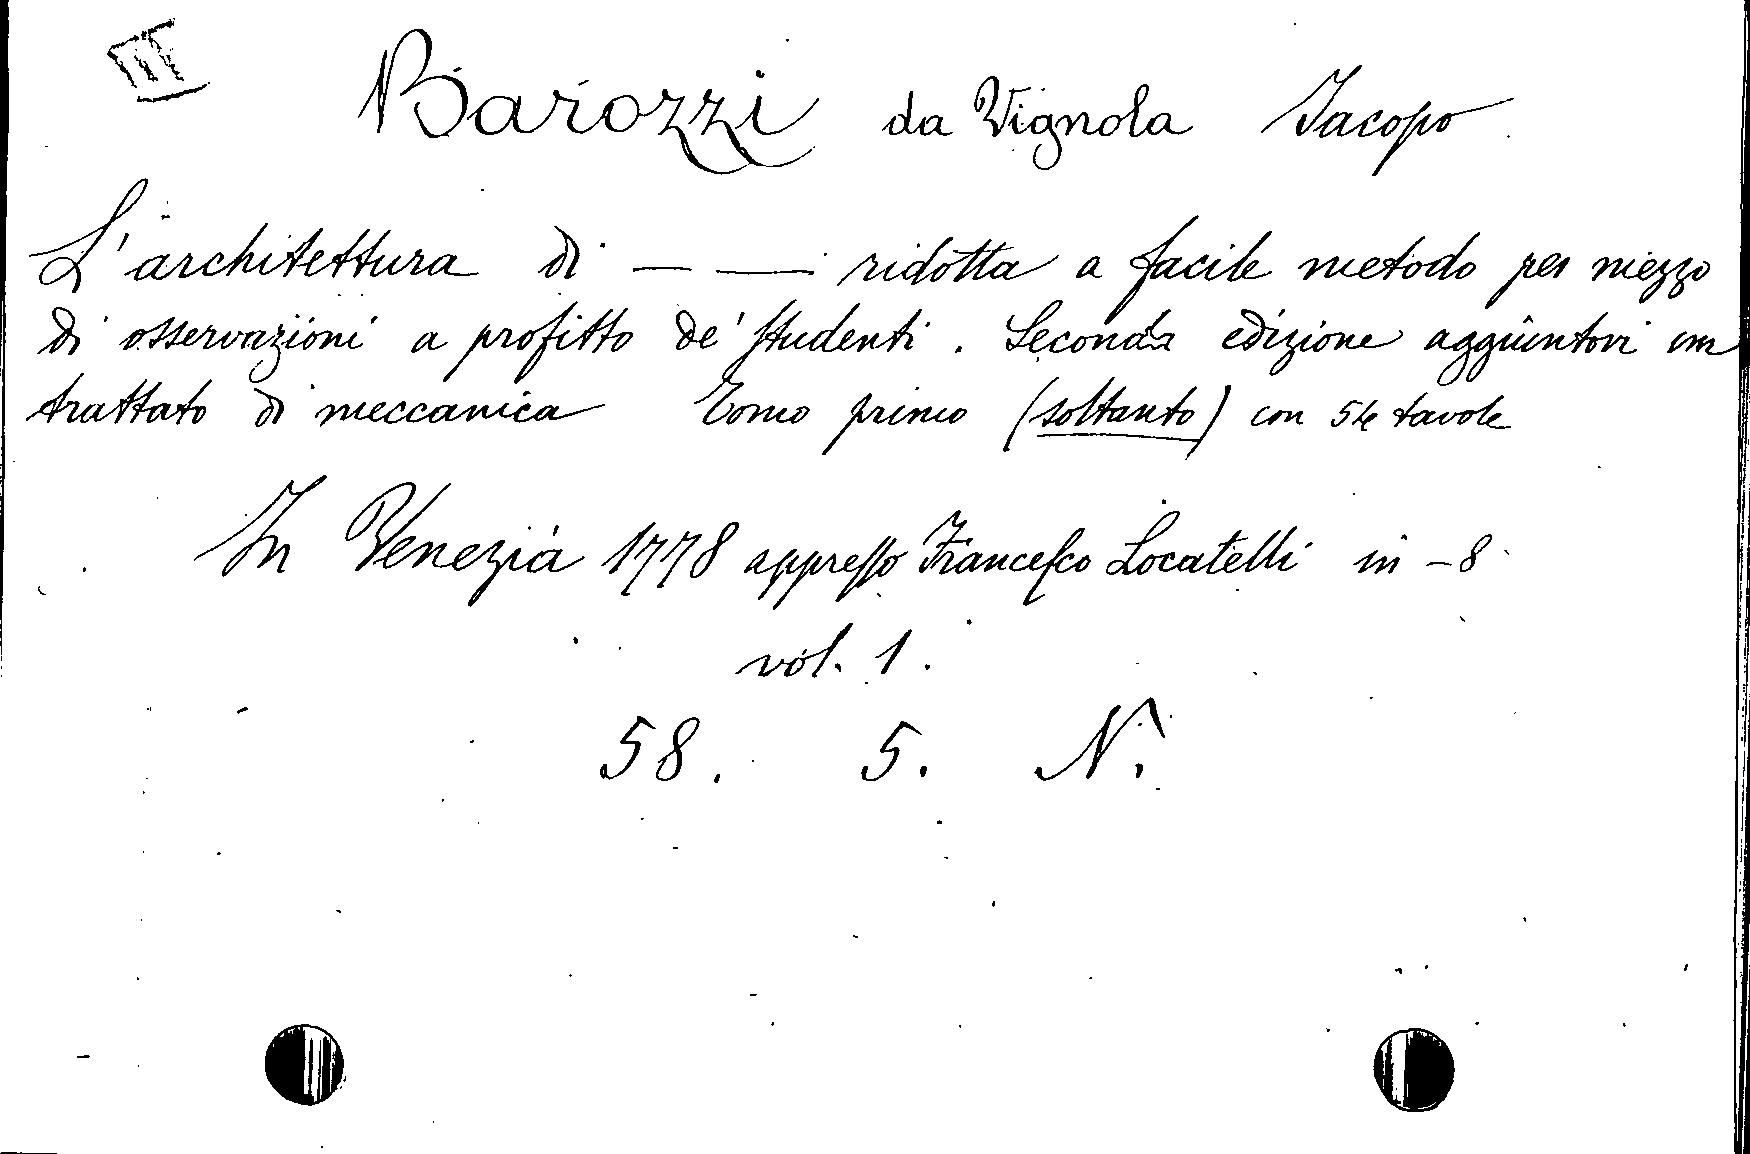 III
Barozzi da Vignola Jacopo
L'architettura di — — ridotta a facile metodo per mezzo
di osservazioni a profitto de' studenti. Seconda edizione aggiuntovi un
trattato di meccanica Tomo primo (soltanto) con 54 tavole
In Venezia 1778 appresso Francesco Locatelli in-8
vol. 1.
58. 5. N.